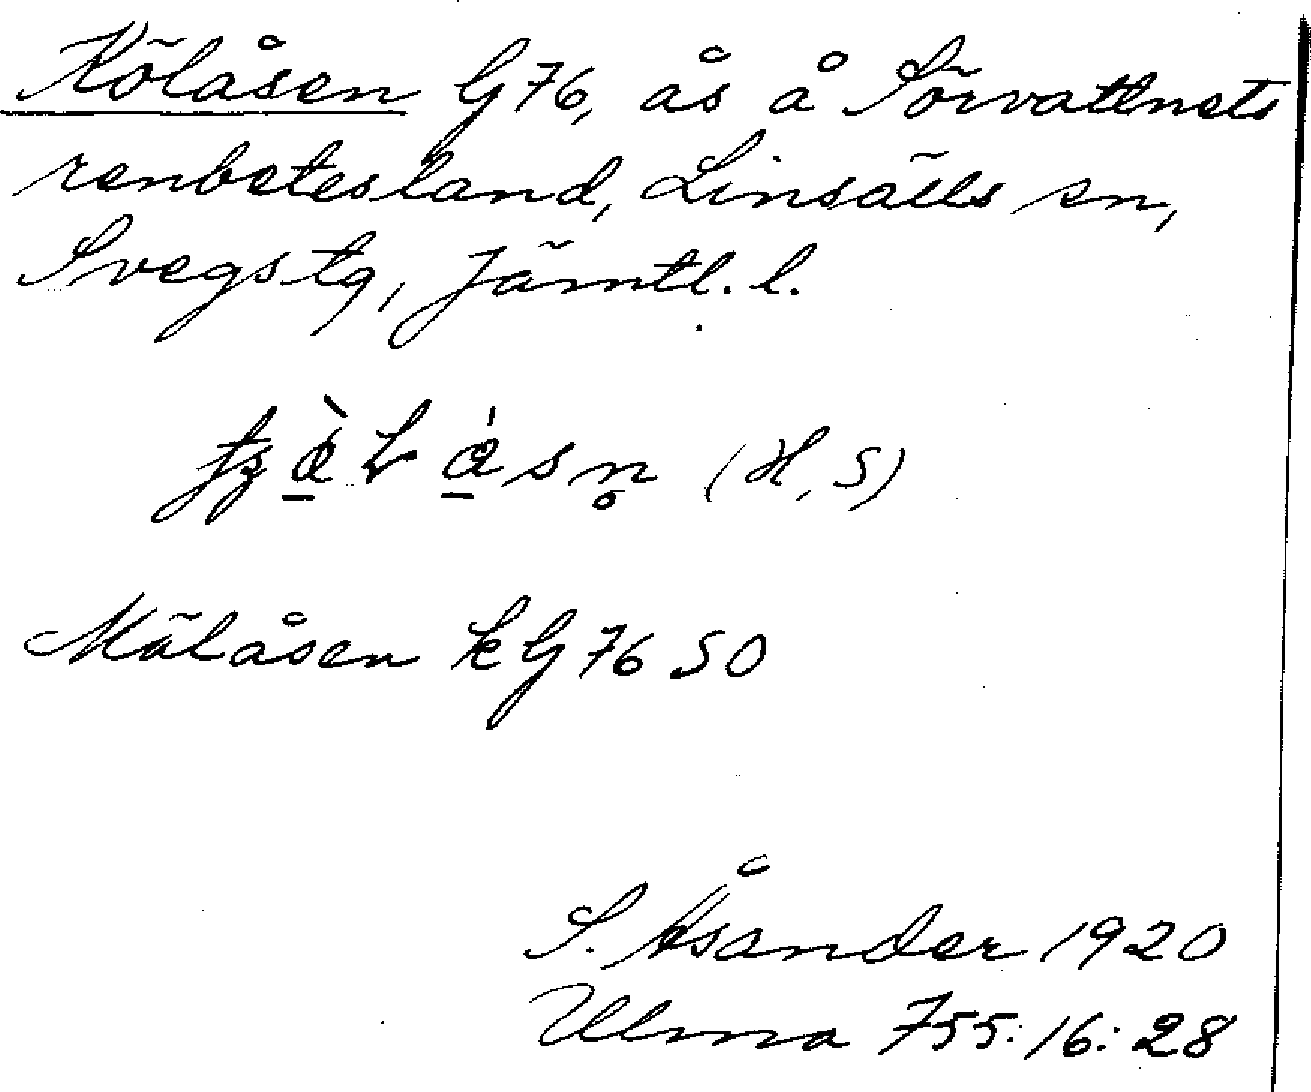 Kölåsen G 76, ås å Sörvattnets
renbetesland, Linsälls sn,
Svegs tg, Jämtl. l.
(H, S)
Mälåsen k G 76 SO
S. Åsander 1920
Ulma 755:16:28